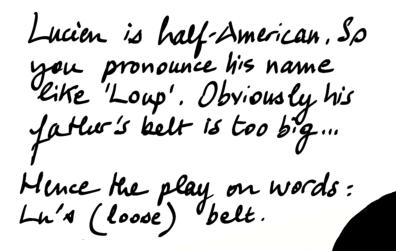 Lucien is half-American. So
you pronounce his name
like 'Loup'. Obviously his
father's belt is too big...
Hence the play on words:
Lu's (loose) belt.